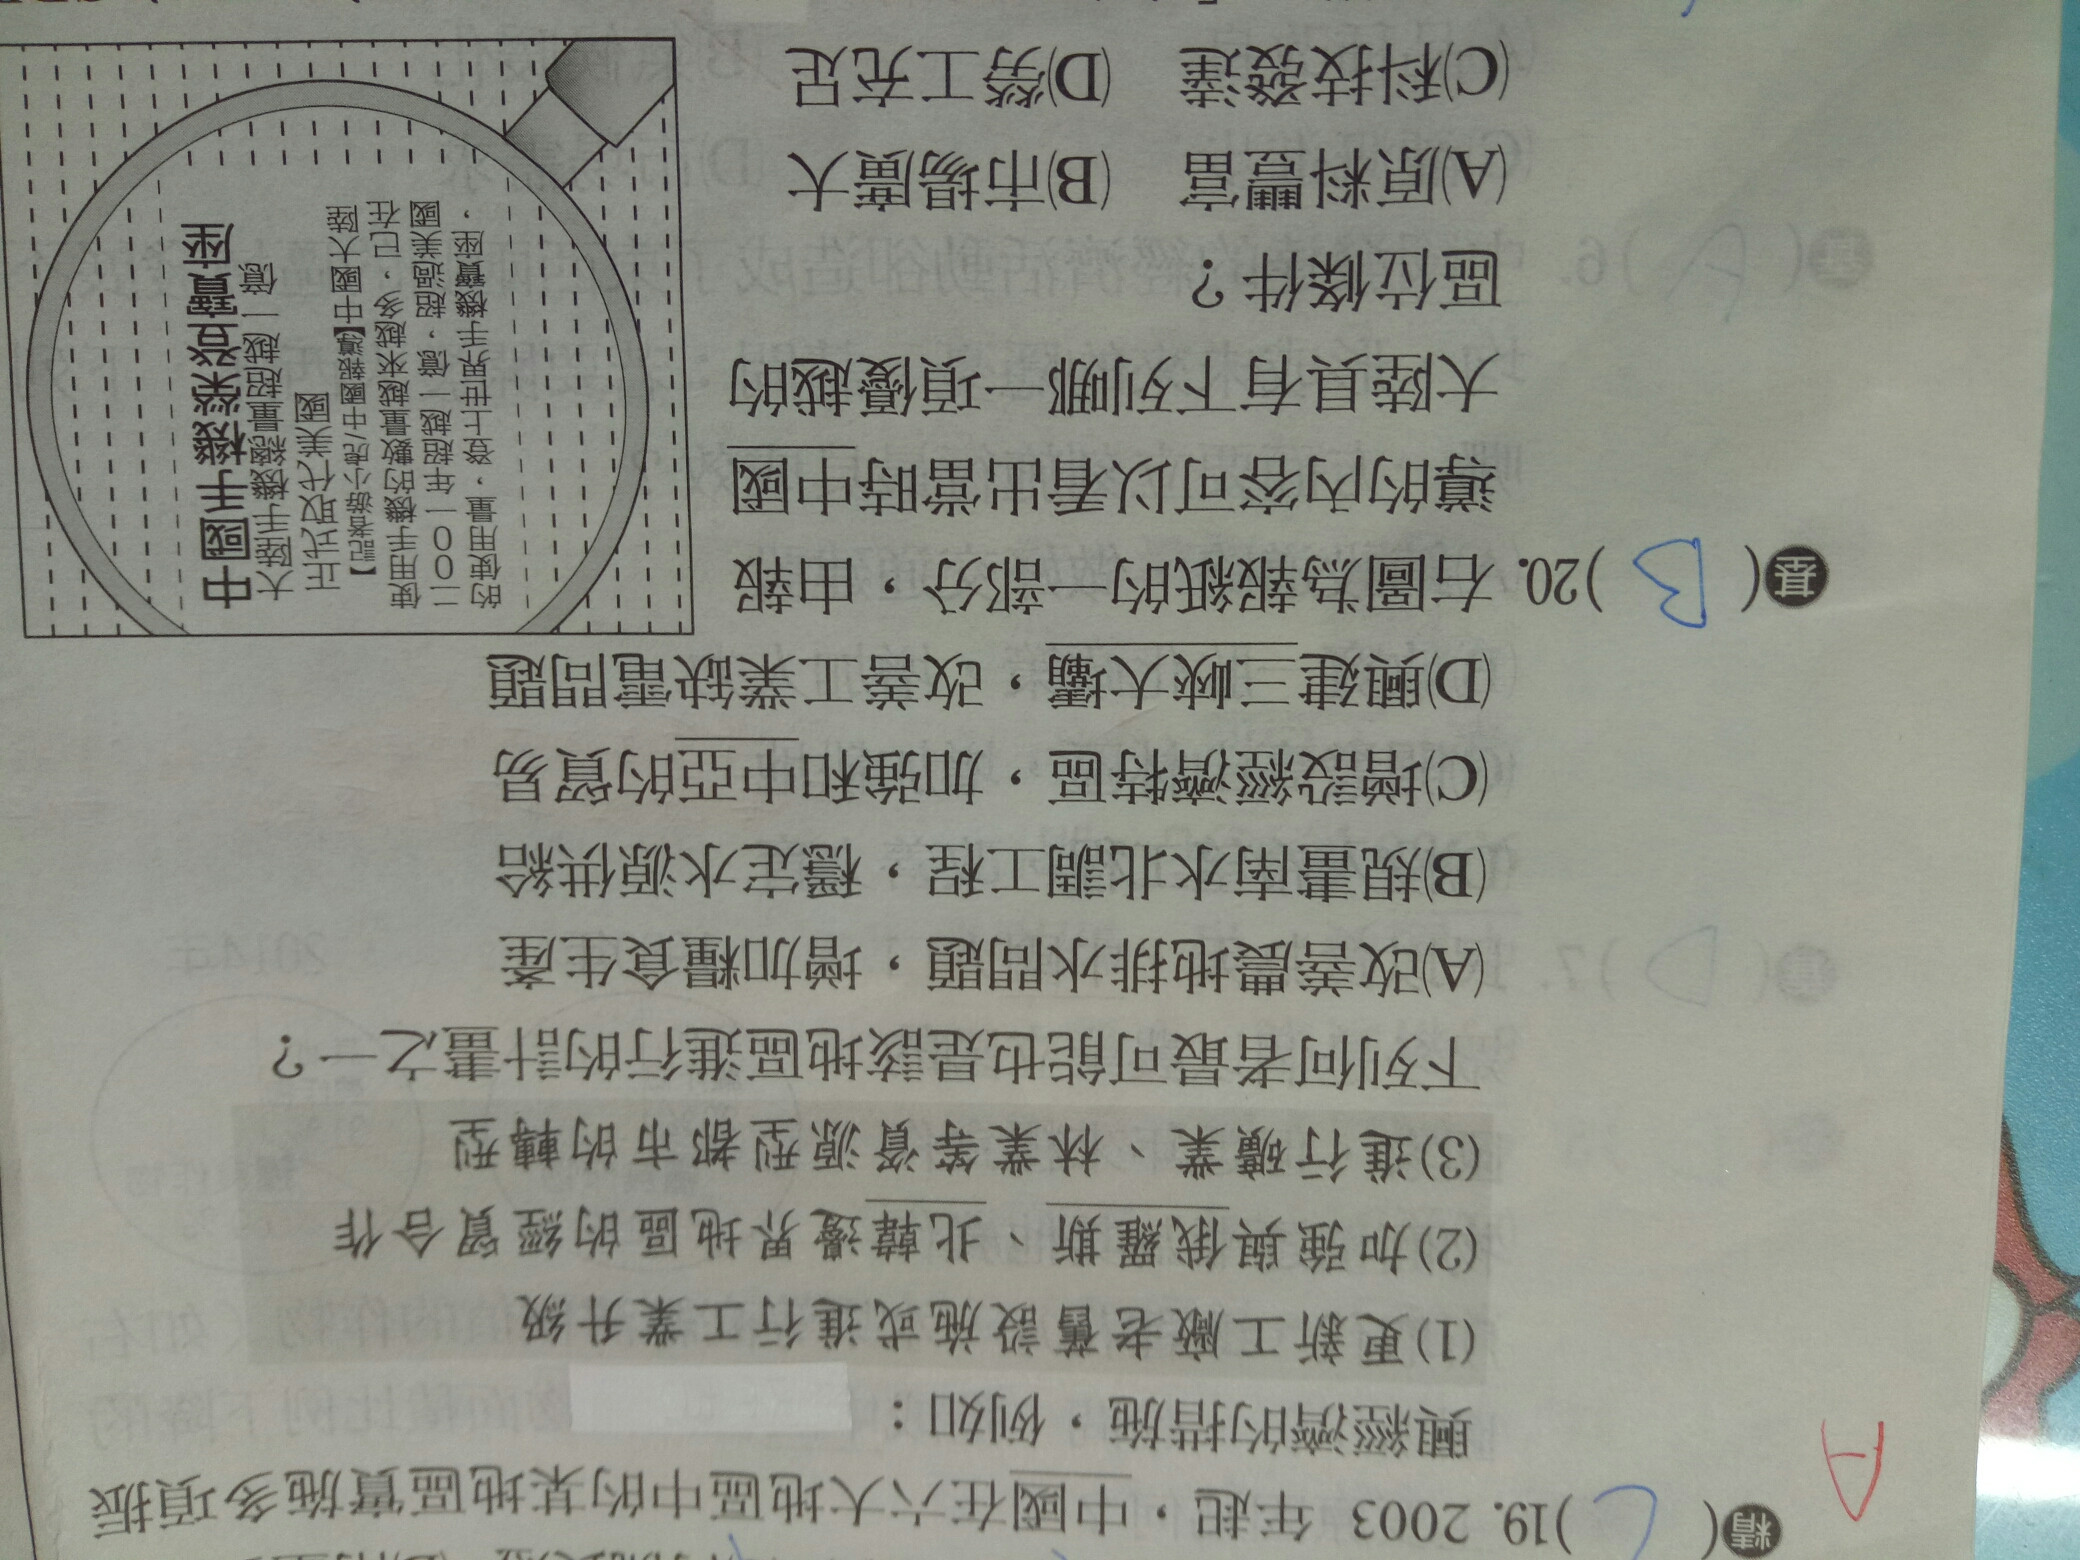 精( C )19. 2003 年起，中國在六大地區中的某地區實施多項振
興經濟的措施，例如：
(1)更新工廠老舊設施或進行工業升級
(2)加強與俄羅斯、北韓邊界地區的經貿合作
(3)進行礦業、林業等資源型都市的轉型
下列何者最可能也是該地區進行的計畫之一？
(A)改善農地排水問題，增加糧食生產
(B)規畫南水北調工程，穩定水源供給
(C)增設經濟特區，加強和中亞的貿易
(D)興建三峽大壩，改善工業缺電問題
A
基( B )20. 右圖為報紙的一部分，由報
導的內容可以看出當時中國
大陸具有下列哪一項優越的
區位條件？
(A)原料豐富　(B)市場廣大
(C)科技發達　(D)勞工充足
中國手機榮登寶座
大陸手機總量超越一億
正式取代美國
【記者游小虎/中國報導】中國大陸
使用手機的數量越來越多，已在
二００一年超越一億，超過美國
的使用量，登上世界手機寶座，